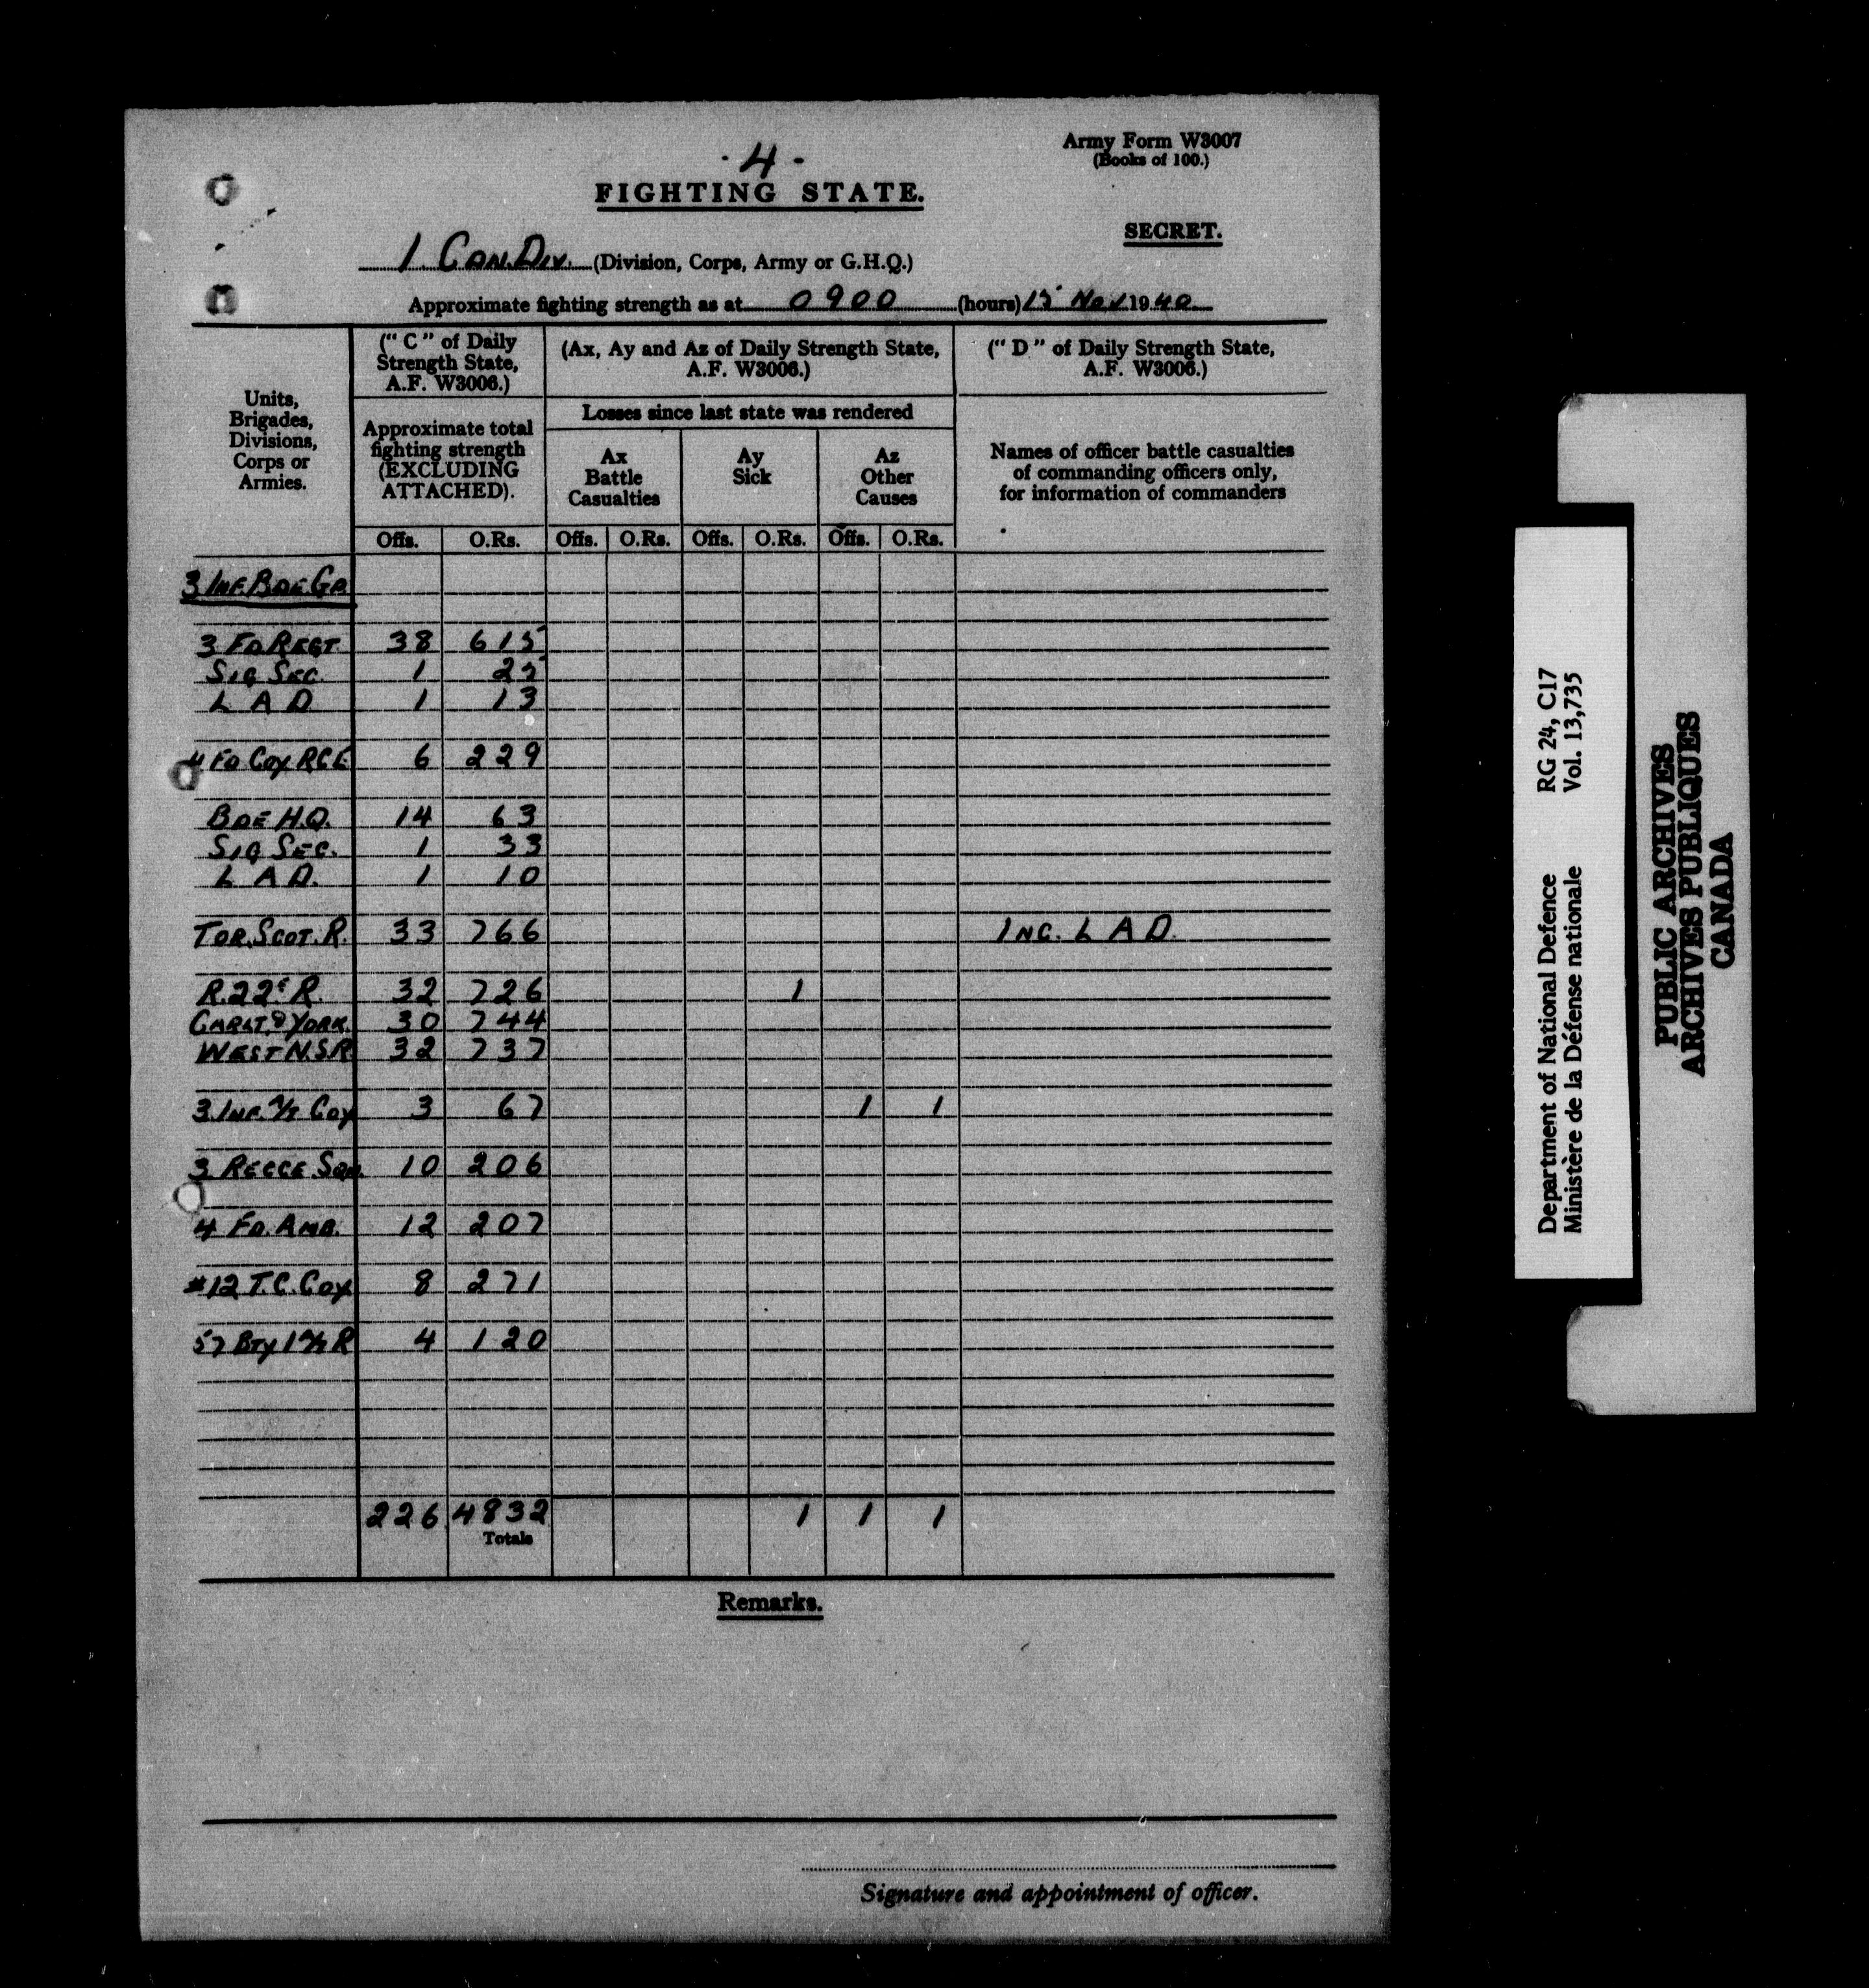 - 4 -
Army Form W3007
(Books of 100.)
FIGHTING STATE.
SECRET.
1 CAN. DIV. (Division, Corps, Army or G.H.Q.)
Approximate fighting strength as at 0900 (hours) 15 Nov 1940
Units, Brigades, Divisions, Corps or Armies.
("C" of Daily Strength State, A.F. W3006.)
(Ax, Ay and Az of Daily Strength State, A.F. W3006.)
("D" of Daily Strength State, A.F. W3006.)
Approximate total fighting strength (EXCLUDING ATTACHED).
Losses since last state was rendered
Ax Battle Casualties
Ay Sick
Az Other Causes
Names of officer battle casualties of commanding officers only, for information of commanders
Offs. O.Rs. Offs. O.Rs. Offs. O.Rs. Offs. O.Rs.
3 INF. BDE. GP.
3 FD REGT 38 615
SIG SEC. 1 25
L A D 1 13
4 FD COY RCE 6 229
BDE H.Q. 14 63
SIG SEC. 1 33
L A D. 1 10
TOR. SCOT. R. 33 766 INC. L A D.
R. 22e R. 32 726 1
CARLT. & YORK. 30 744
WEST N.S.R. 32 737
3 INF. A/T COY 3 67 1 1
3 RECCE SQN. 10 206
4 FD. AMB. 12 207
#12 T.C. COY 8 271
57 BTY 1 A/T R 4 120
226 4832 1 1 1
Totals
Remarks.
Signature and appointment of officer.
Department of National Defence RG 24, C17
Ministère de la Défense nationale Vol. 13,735
PUBLIC ARCHIVES
ARCHIVES PUBLIQUES
CANADA